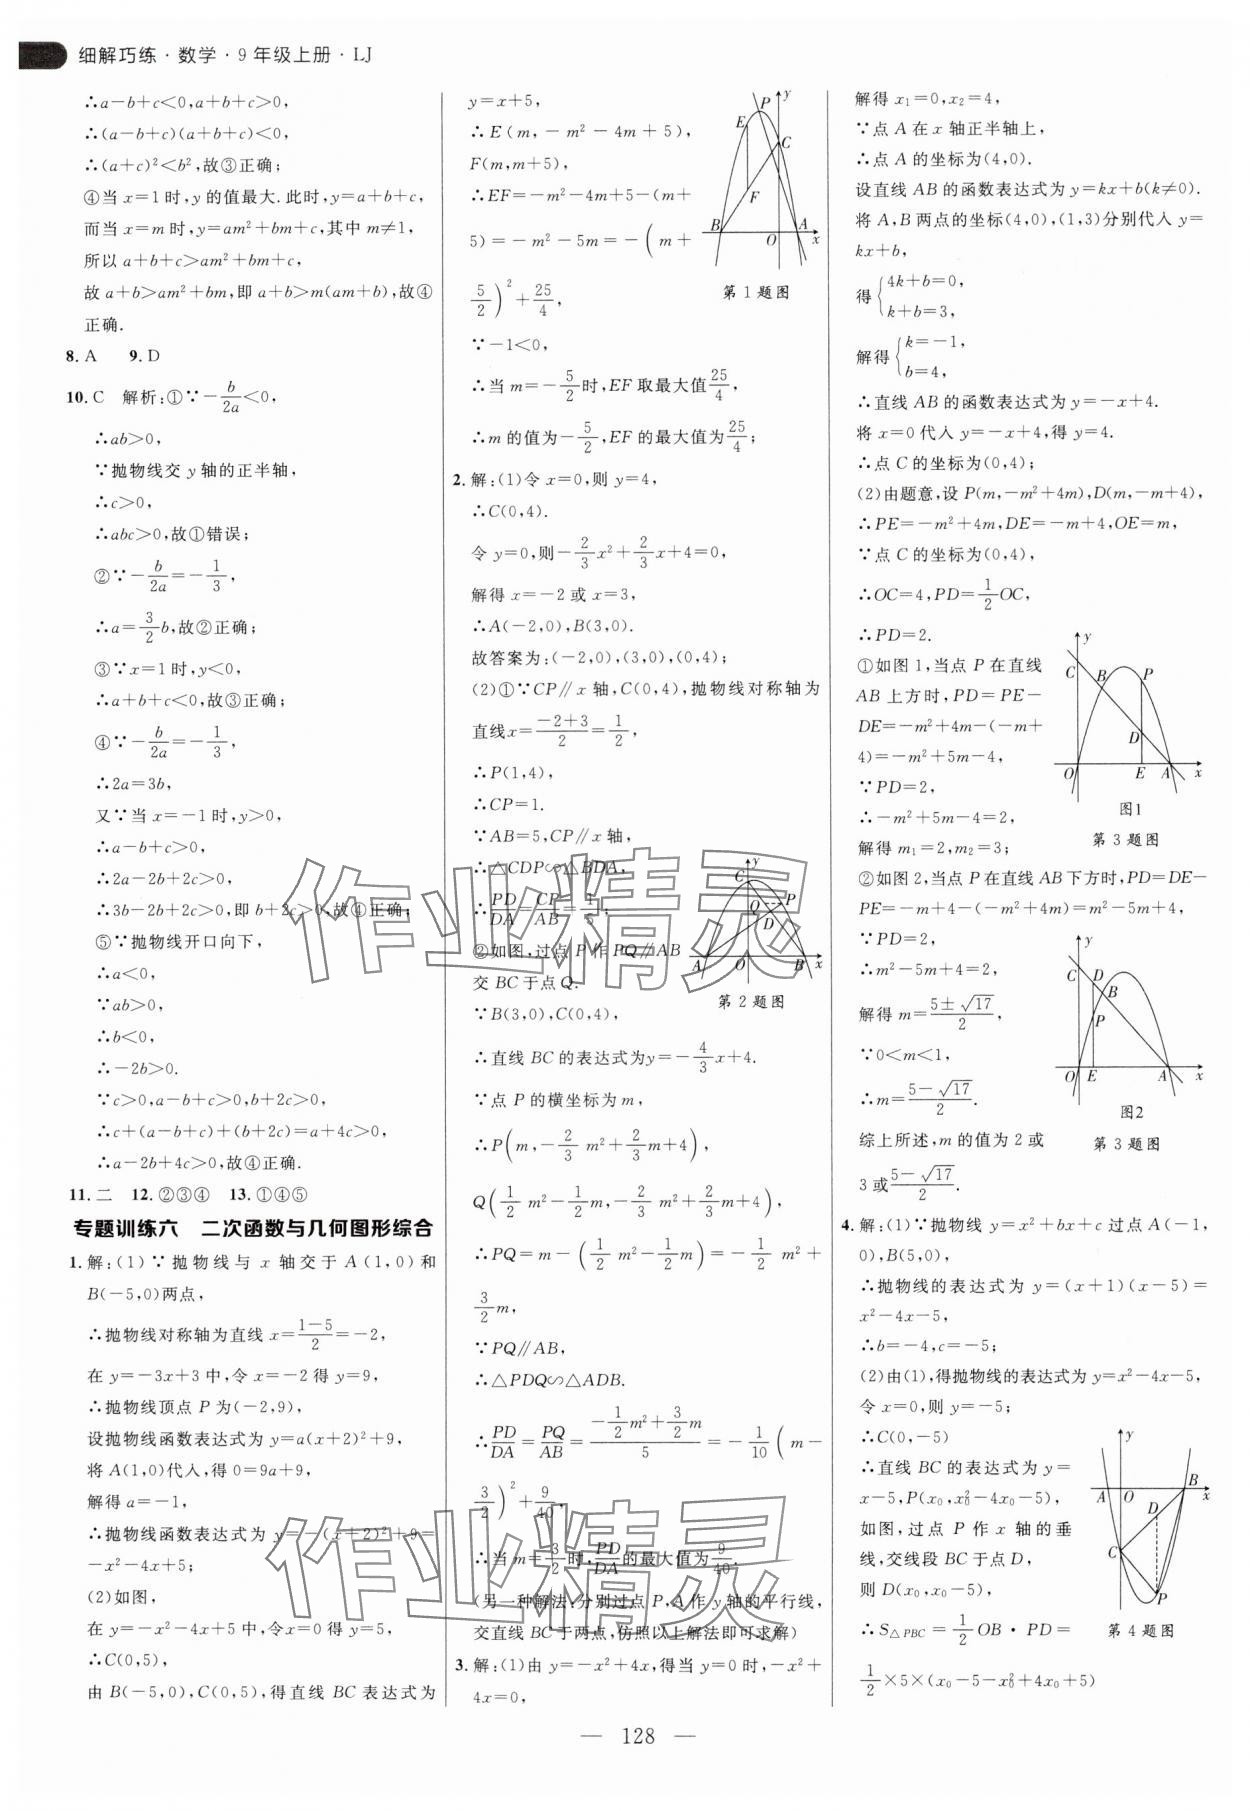 细解巧练·数学·9年级上册·LJ
∴a-b+c<0,a+b+c>0,
∴(a-b+c)(a+b+c)<0,
∴(a+c)²<b²,故③正确;
④当x=1时,y的值最大.此时,y=a+b+c,
而当x=m时,y=am²+bm+c,其中m≠1,
所以a+b+c>am²+bm+c,
故a+b>am²+bm,即a+b>m(am+b),故④
正确.
8.A 9.D
10.C 解析:①∵-b/2a<0,
∴ab>0,
∵抛物线交y轴的正半轴,
∴c>0,
∴abc>0,故①错误;
②∵-b/2a=-1/3,
∴a=3/2b,故②正确;
③∵x=1时,y<0,
∴a+b+c<0,故③正确;
④∵-b/2a=-1/3,
∴2a=3b,
又∵当x=-1时,y>0,
∴a-b+c>0,
∴2a-2b+2c>0,
∴3b-2b+2c>0,即b+2c>0,故④正确;
⑤∵抛物线开口向下,
∴a<0,
∵ab>0,
∴b<0,
∴-2b>0.
∵c>0,a-b+c>0,b+2c>0,
∴c+(a-b+c)+(b+2c)=a+4c>0,
∴a-2b+4c>0,故④正确.
11.二 12.②③④ 13.①④⑤
专题训练六 二次函数与几何图形综合
1.解:(1)∵抛物线与x轴交于A(1,0)和
B(-5,0)两点,
∴抛物线对称轴为直线x=(1-5)/2=-2,
在y=-3x+3中,令x=-2得y=9,
∴抛物线顶点P为(-2,9),
设抛物线函数表达式为y=a(x+2)²+9,
将A(1,0)代入,得0=9a+9,
解得a=-1,
∴抛物线函数表达式为y=-(x+2)²+9=
-x²-4x+5;
(2)如图,
在y=-x²-4x+5中,令x=0得y=5,
∴C(0,5),
由B(-5,0),C(0,5),得直线BC表达式为
y=x+5,
∴E(m,-m²-4m+5),
F(m,m+5),
∴EF=-m²-4m+5-(m+
5)=-m²-5m=-(m+
5/2)²+25/4,
y
P
E
C
F
B
O
A
x
第1题图
∵-1<0,
∴当m=-5/2时,EF取最大值25/4,
∴m的值为-5/2,EF的最大值为25/4;
2.解:(1)令x=0,则y=4,
∴C(0,4).
令y=0,则-2/3x²+2/3x+4=0,
解得x=-2或x=3,
∴A(-2,0),B(3,0).
故答案为:(-2,0),(3,0),(0,4);
(2)①∵CP∥x轴,C(0,4),抛物线对称轴为
直线x=(-2+3)/2=1/2,
∴P(1,4),
∴CP=1.
∵AB=5,CP∥x轴,
∴△CDP∽△BDA,
∴PD/DA=CP/AB=1/5;
②如图,过点P作PQ∥AB
交BC于点Q.
y
C
Q
P
D
A
O
B
x
第2题图
∵B(3,0),C(0,4),
∴直线BC的表达式为y=-4/3x+4.
∵点P的横坐标为m,
∴P(m,-2/3m²+2/3m+4),
Q(1/2m²-1/2m,-2/3m²+2/3m+4),
∴PQ=m-(1/2m²-1/2m)=-1/2m²+
3/2m,
∵PQ∥AB,
∴△PDQ∽△ADB.
∴PD/DA=PQ/AB=(-1/2m²+3/2m)/5=-1/10(m-
3/2)²+9/40,
∴当m=3/2时,PD/DA的最大值为9/40.
(另一种解法:分别过点P,A作y轴的平行线,
交直线BC于两点,仿照以上解法即可求解)
3.解:(1)由y=-x²+4x,得当y=0时,-x²+
4x=0,
解得x₁=0,x₂=4,
∵点A在x轴正半轴上,
∴点A的坐标为(4,0).
设直线AB的函数表达式为y=kx+b(k≠0).
将A,B两点的坐标(4,0),(1,3)分别代入y=
kx+b,
得{4k+b=0,
k+b=3,
解得{k=-1,
b=4,
∴直线AB的函数表达式为y=-x+4.
将x=0代入y=-x+4,得y=4.
∴点C的坐标为(0,4);
(2)由题意,设P(m,-m²+4m),D(m,-m+4),
∴PE=-m²+4m,DE=-m+4,OE=m,
∵点C的坐标为(0,4),
∴OC=4,PD=1/2OC,
∴PD=2.
①如图1,当点P在直线
AB上方时,PD=PE-
DE=-m²+4m-(-m+
4)=-m²+5m-4,
∵PD=2,
∴-m²+5m-4=2,
解得m₁=2,m₂=3;
y
C
B
P
D
O
E
A
x
图1
第3题图
②如图2,当点P在直线AB下方时,PD=DE-
PE=-m+4-(-m²+4m)=m²-5m+4,
∵PD=2,
∴m²-5m+4=2,
解得m=(5±√17)/2,
∵0<m<1,
∴m=(5-√17)/2.
综上所述,m的值为2或
3或(5-√17)/2.
y
C
D
B
P
O
E
A
x
图2
第3题图
4.解:(1)∵抛物线y=x²+bx+c过点A(-1,
0),B(5,0),
∴抛物线的表达式为y=(x+1)(x-5)=
x²-4x-5,
∴b=-4,c=-5;
(2)由(1),得抛物线的表达式为y=x²-4x-5,
令x=0,则y=-5,
∴C(0,-5)
∴直线BC的表达式为y=
x-5,P(x₀,x₀²-4x₀-5),
如图,过点P作x轴的垂
线,交线段BC于点D,
则D(x₀,x₀-5),
∴S△PBC=1/2OB·PD=
1/2×5×(x₀-5-x₀²+4x₀+5)
y
A
O
B
x
D
C
P
第4题图
— 128 —
作业精灵
作业精灵